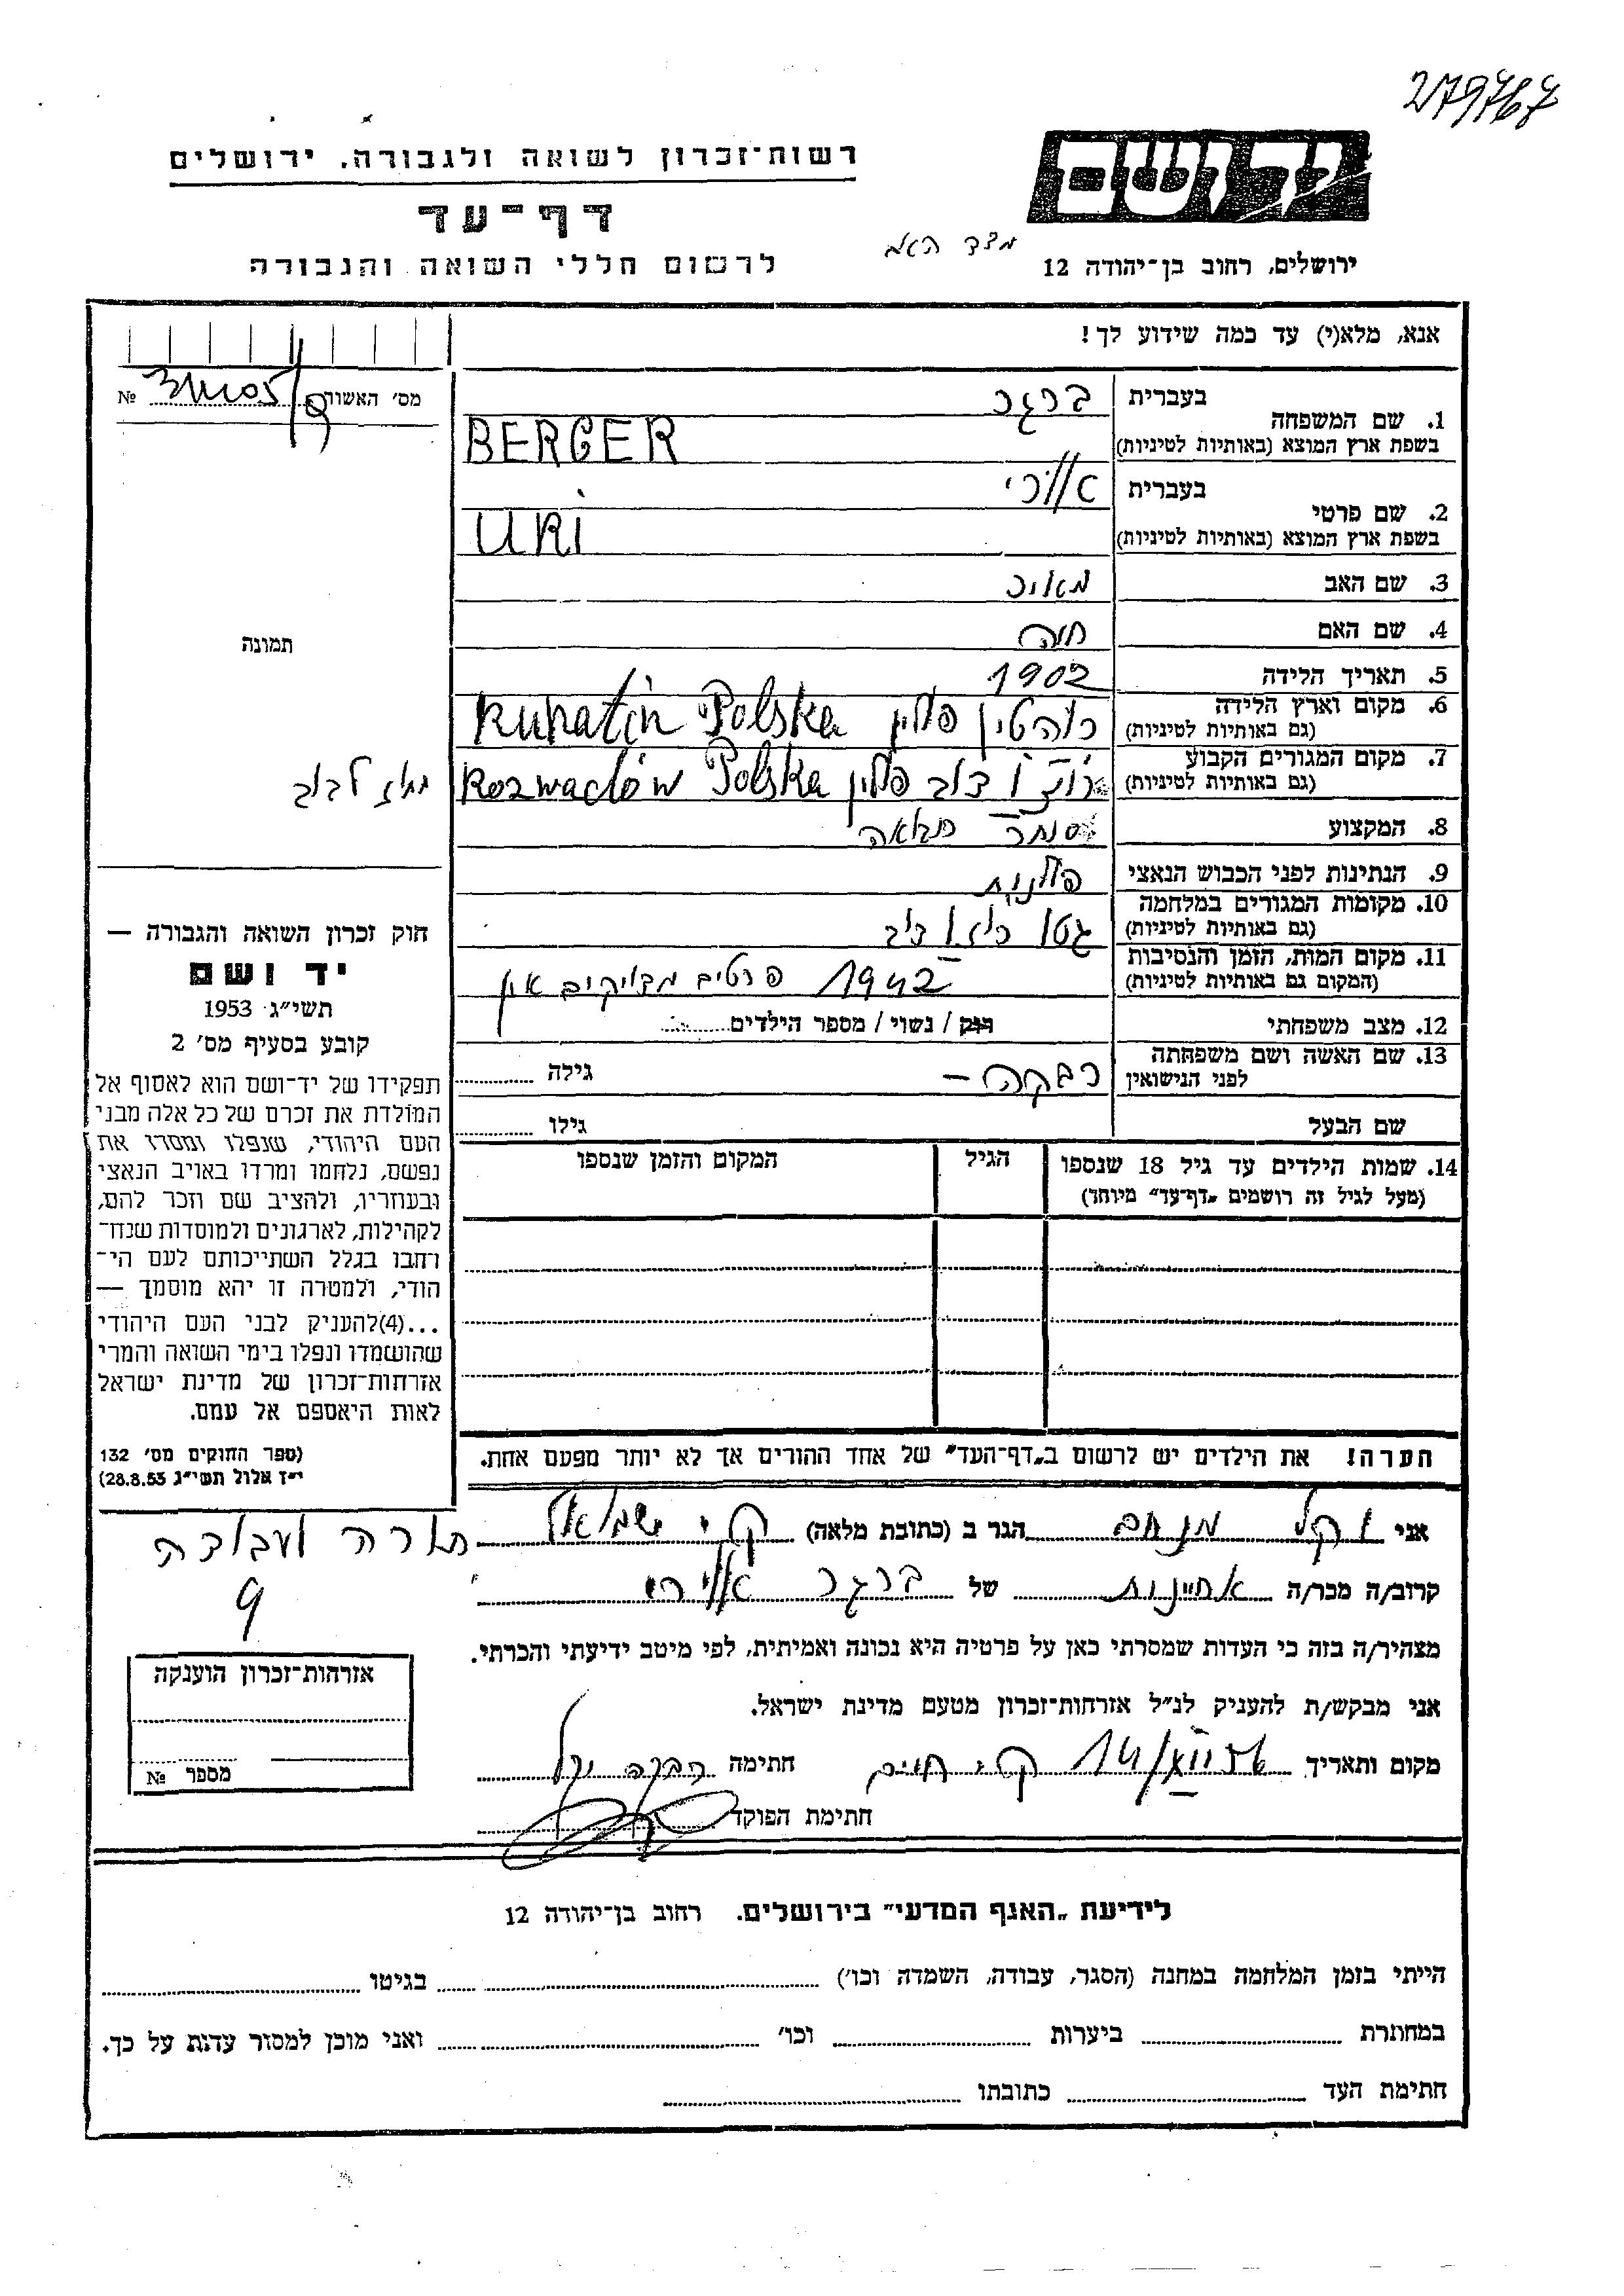 279767
רשות־זכרון לשואה ולגבורה, ירושלים
דף־עד
לרשום חללי השואה והגבורה
יד ושם
ירושלים, רחוב בן־יהודה 12
מצד האב
אנא, מלא(י) עד כמה שידוע לך!
מס׳ האשור №
1. שם המשפחה בעברית ברגר
בשפת ארץ המוצא (באותיות לטיניות) BERGER
2. שם פרטי בעברית אורי
בשפת ארץ המוצא (באותיות לטיניות) URI
3. שם האב מאיר
4. שם האם חיה
5. תאריך הלידה 1902
6. מקום וארץ הלידה
(גם באותיות לטיניות) רוהטין פולין Ruhatin Polska
7. מקום המגורים הקבוע
(גם באותיות לטיניות) רוזוודוב פולין Rozwadów Polska
מחוז לבוב
8. המקצוע סוחר תבואה
9. הנתינות לפני הכבוש הנאצי פולנית
10. מקומות המגורים במלחמה
(גם באותיות לטיניות) גטו
11. מקום המות, הזמן והנסיבות
(המקום גם באותיות לטיניות) 1942 פרטים מדויקים אין
12. מצב משפחתי רוק / נשוי / מספר הילדים
13. שם האשה ושם משפחתה
לפני הנישואין רבקה — גילה
שם הבעל גילו
14. שמות הילדים עד גיל 18 שנספו
(מעל לגיל זה רושמים „דף־עד״ מיוחד)
הגיל
המקום והזמן שנספו
הערה! את הילדים יש לרשום ב„דף־העד״ של אחד ההורים אך לא יותר מפעם אחת.
תמונה
חוק זכרון השואה והגבורה —
יד ושם
תשי״ג 1953
קובע בסעיף מס׳ 2
תפקידו של יד־ושם הוא לאסוף אל
המולדת את זכרם של כל אלה מבני
העם היהודי, שנפלו ומסרו את
נפשם, נלחמו ומרדו באויב הנאצי
ובעוזריו, ולהציב שם וזכר להם,
לקהילות, לארגונים ולמוסדות שנח־
רבו בגלל השתייכותם לעם הי־
הודי, ולמטרה זו יהא מוסמך —
...(4)להעניק לבני העם היהודי
שהושמדו ונפלו בימי השואה והמרי
אזרחות־זכרון של מדינת ישראל
לאות היאספם אל עמם.
(ספר החוקים מס׳ 132
י״ז אלול תשי״ג 28.8.53)
אני וקל מנחם הגר ב (כתובת מלאה) ק׳ שמואל תורה ועבודה
9
קרוב/ה מכר/ה אחיינות של ברגר אורי
מצהיר/ה בזה כי העדות שמסרתי כאן על פרטיה היא נכונה ואמיתית, לפי מיטב ידיעתי והכרתי.
אני מבקש/ת להעניק לנ״ל אזרחות־זכרון מטעם מדינת ישראל.
מקום ותאריך ק׳ חיים חתימה רבקה וקל
חתימת הפוקד
אזרחות־זכרון הוענקה
מספר №
לידיעת „האגף המדעי״ בירושלים, רחוב בן־יהודה 12
הייתי בזמן המלחמה במחנה (הסגר, עבודה, השמדה וכו׳) בגיטו
במחתרת ביערות וכו׳ ואני מוכן למסור עדות על כך.
חתימת העד כתובתו